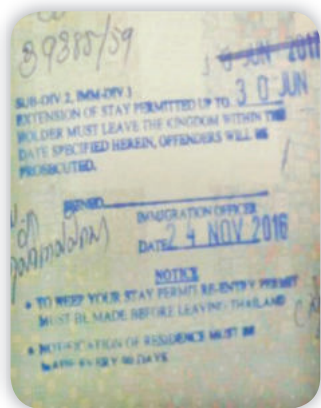 39385/59
30 JUN 2017
SUB-DIV 2, IMM-DIV 1
EXTENSION OF STAY PERMITTED UP TO 30 JUN
HOLDER MUST LEAVE THE KINGDOM WITHIN THE
DATE SPECIFIED HEREIN, OFFENDERS WILL BE
PROSECUTED.
SIGNED
IMMIGRATION OFFICER
DATE 24 NOV 2016
NOTICE
• TO KEEP YOUR STAY PERMIT RE-ENTRY PERMIT
MUST BE MADE BEFORE LEAVING THAILAND
• NOTIFICATION OF RESIDENCE MUST BE
MADE EVERY 90 DAYS